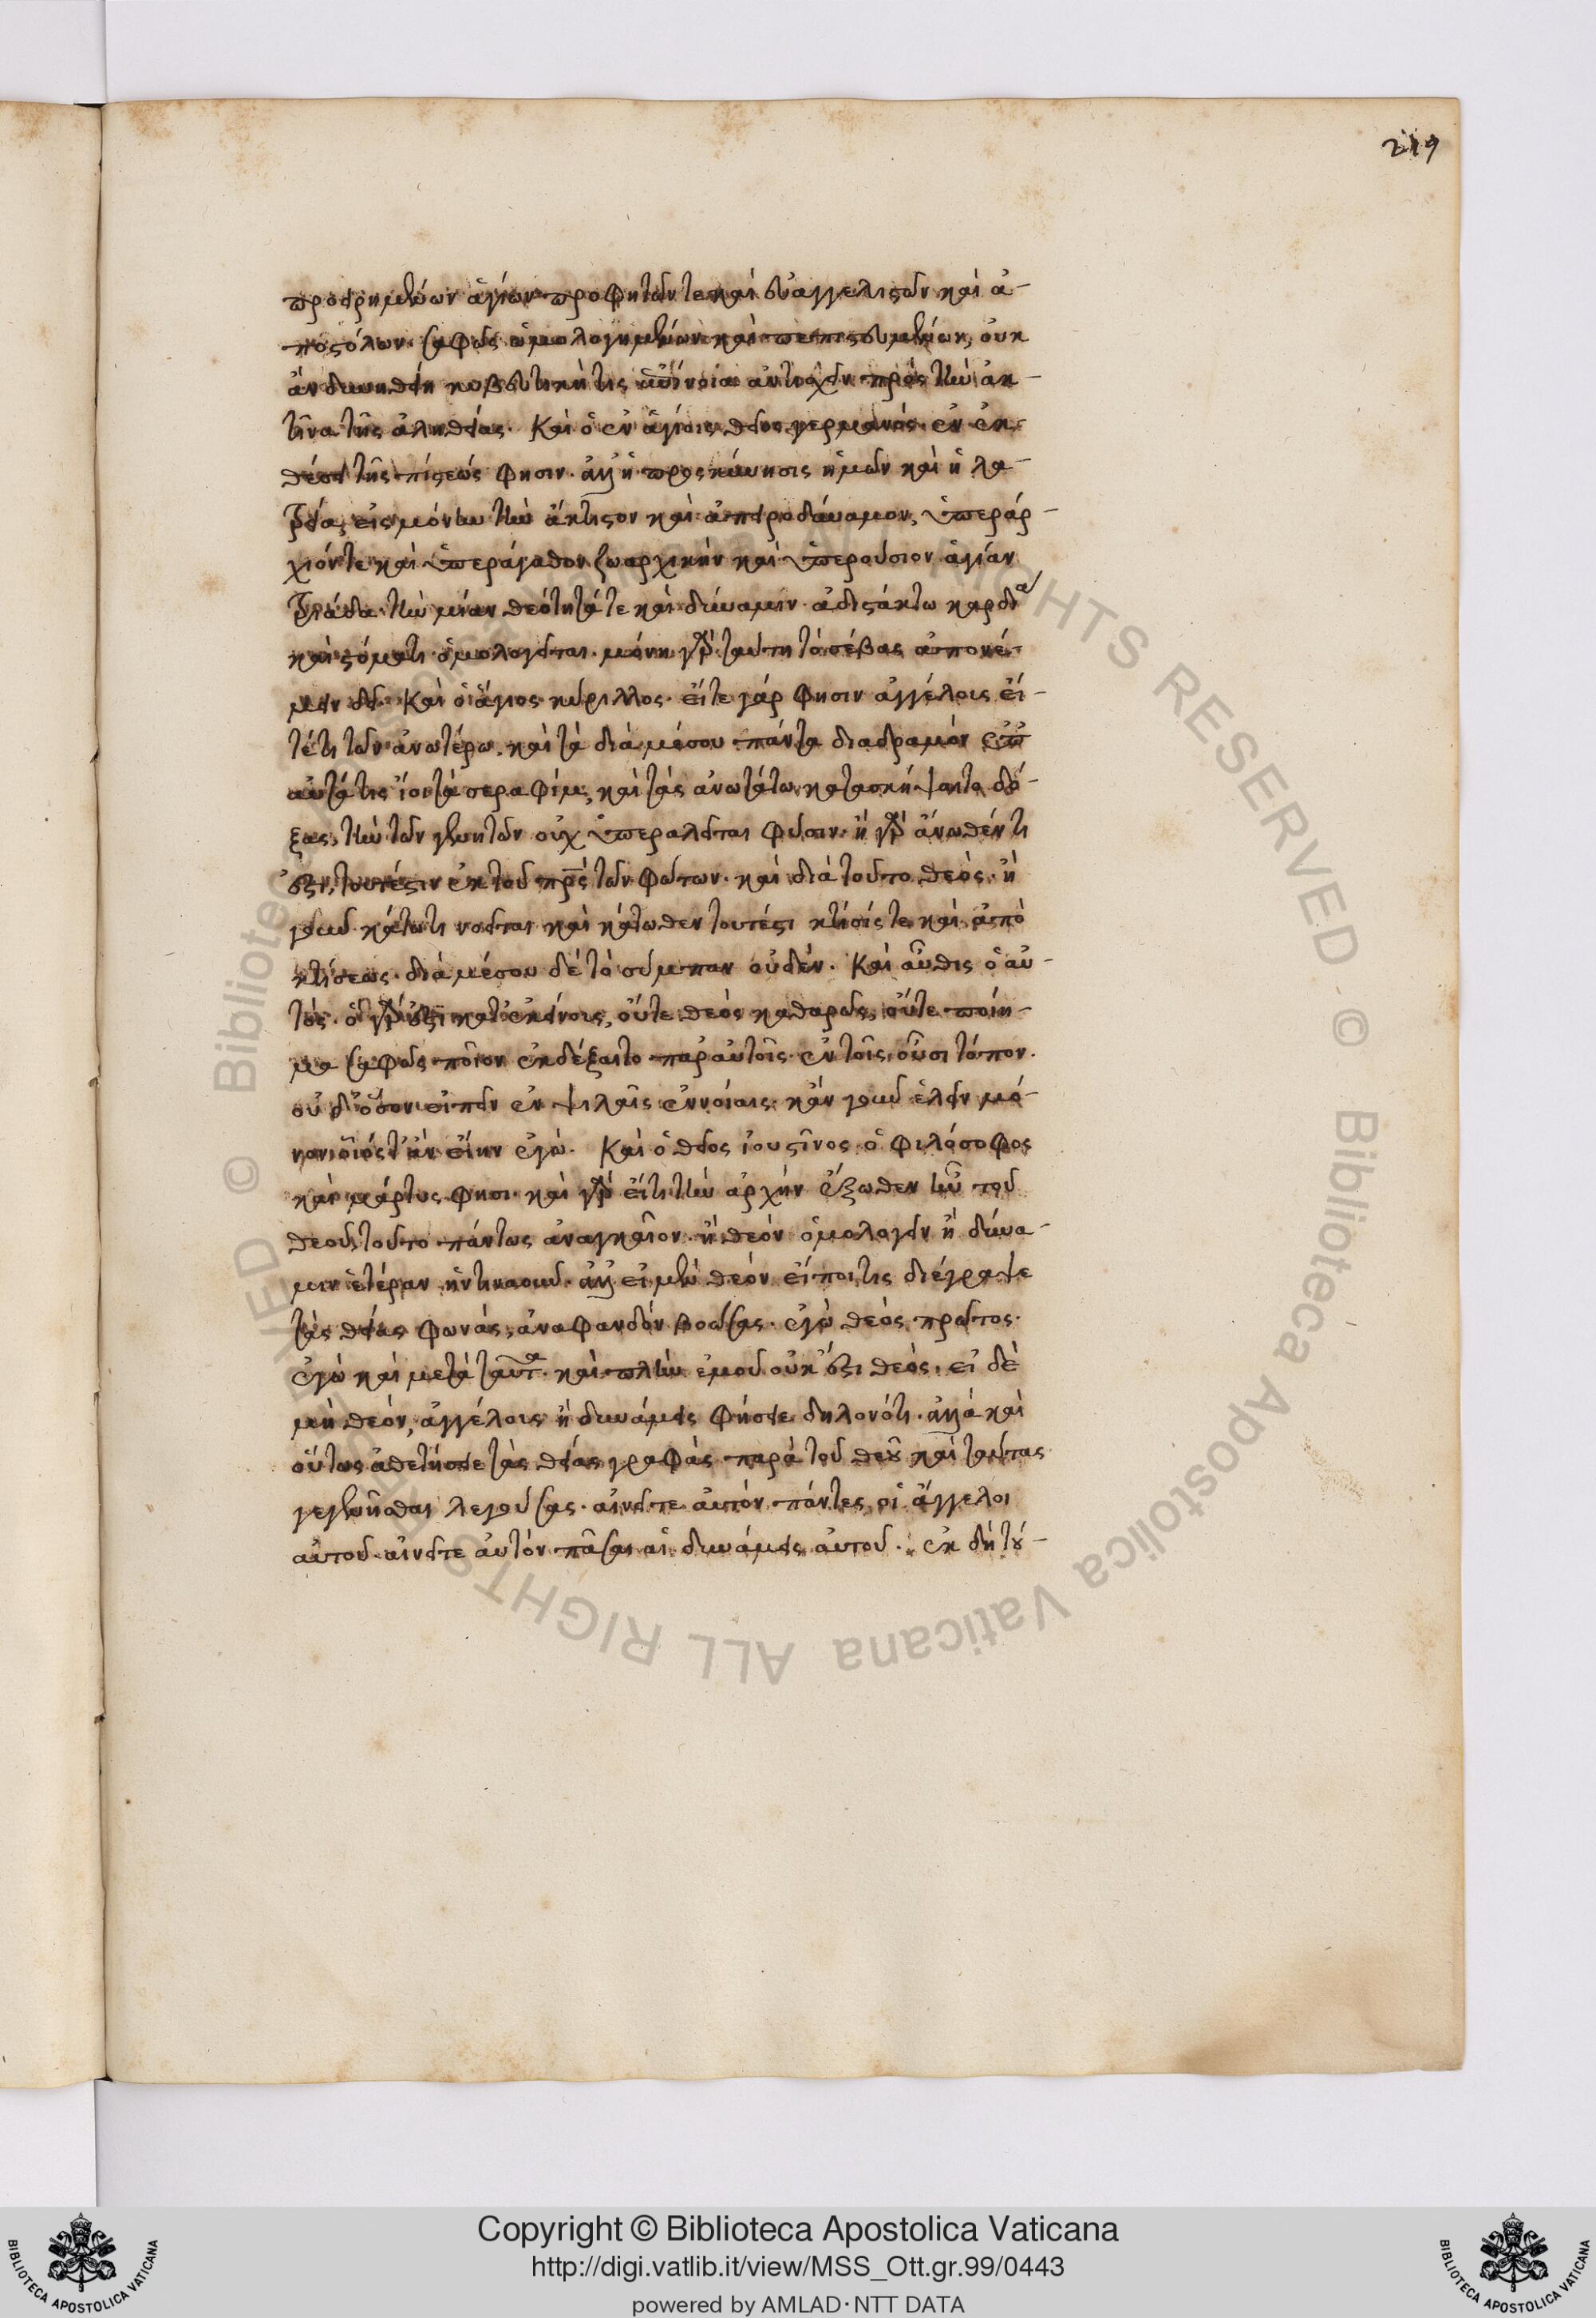 219
προειρημένων ἁγίων προφητῶν τε καὶ εὐαγγελιστῶν καὶ ἀ-
ποστόλων σαφῶς ὡμολογημένων καὶ πεπιστευμένων, οὐκ
ἂν δυνηθείη κυβευτική τις ἐπίνοια ἀντισχεῖν πρὸς τὴν ἀκ-
τῖνα τῆς ἀληθείας. Καὶ ὁ ἐν ἁγίοις θεῖος γερμανὸς ἐν ἐκ-
θέσει τῆς πίστεώς φησιν. ἀλλ' ἡ προσκύνησις ἡμῶν καὶ ἡ λα-
τρεία, εἰς μόνην τὴν ἄκτιστον καὶ ἀπειροδύναμον, ὑπεράρ-
χιόν τε καὶ ὑπεράγαθον ζωαρχικὴν καὶ ὑπερούσιον ἁγίαν
Τριάδα. τὴν μίαν θεότητά τε καὶ δύναμιν ἀδιστάκτω καρδία
καὶ στόματι ὁμολογεῖται. μόνη γὰρ ταύτη τὸ σέβας ἀπονέ-
μειν δεῖ. Καὶ ὁ ἅγιος κύριλλος. εἴτε γάρ φησιν ἀγγέλοις εἴ-
τέ τι τῶν ἀνωτέρω, καὶ τὰ διὰ μέσου πάντα διαδραμὸν ἐπ'
αὐτά τις ἴοι τὰ σεραφίμ, καὶ τὰς ἀνωτάτω κατασκήψαιτο δό-
ξας, τὴν τῶν γενητῶν οὐχ ὑπεραλεῖται φύσιν. ἢ γὰρ ἄνωθέν τι
ἐστι, τουτέστιν ἐκ τοῦ πρς τῶν φώτων. καὶ διὰ τοῦτο θεός. ἢ
γοῦν κάτω τι νοεῖται καὶ κάτωθεν τουτέστι κτίσις τε καὶ ἀπὸ
κτίσεως. διὰ μέσου δὲ τὸ σύμπαν οὐδέν. Καὶ αὖθις ὁ αὐ-
τός. ὁ γὰρ ἐστι κατ' ἐκείνοις, οὔτε θεὸς καθαρῶς, οὔτε ποίη-
μα σαφῶς ποῖον ἐκδέξαιτο παρ' αὐτοῖς ἐν τοῖς οὖσι τόπον.
οὐδ' ὅσον εἰπεῖν ἐν ψιλαῖς ἐννοίαις κἂν γοῦν ἑλεῖν μό-
νον οἷός τ' ἂν εἴην ἐγώ. Καὶ ὁ θεῖος ἰουστῖνος ὁ φιλόσοφος
καὶ μάρτυς φησι. καὶ γὰρ εἴ τι τὴν ἀρχὴν ἔξωθεν ἦν τοῦ
θεοῦ, τοῦτο πάντως ἀναγκαῖον ἢ θεὸν ὁμολογεῖν ἢ δύνα-
μιν ἑτέραν ἡντιναοῦν. ἀλλ' εἰ μὲν θεὸν εἴποι τις διέγραψε
τὰς θείας φωνάς, ἀναφανδὸν βοώσας. ἐγὼ θεὸς πρῶτος.
ἐγὼ καὶ μετὰ ταῦτα. καὶ πλὴν ἐμοῦ οὐκ ἔστι θεός. εἰ δὲ
μὴ θεόν, ἀγγέλους ἢ δυνάμεις φήσειε δηλονότι. ἀλλὰ καὶ
οὕτως ἀθετήσειε τὰς θείας γραφὰς παρὰ τοῦ θεοῦ καὶ ταύτας
γεγενῆσθαι λεγούσας. αἰνεῖτε αὐτὸν πάντες οἱ ἄγγελοι
αὐτοῦ. αἰνεῖτε αὐτὸν πᾶσαι αἱ δυνάμεις αὐτοῦ. ἐκ δὴ τού-
Copyright © Biblioteca Apostolica Vaticana
http://digi.vatlib.it/view/MSS_Ott.gr.99/0443
powered by AMLAD · NTT DATA